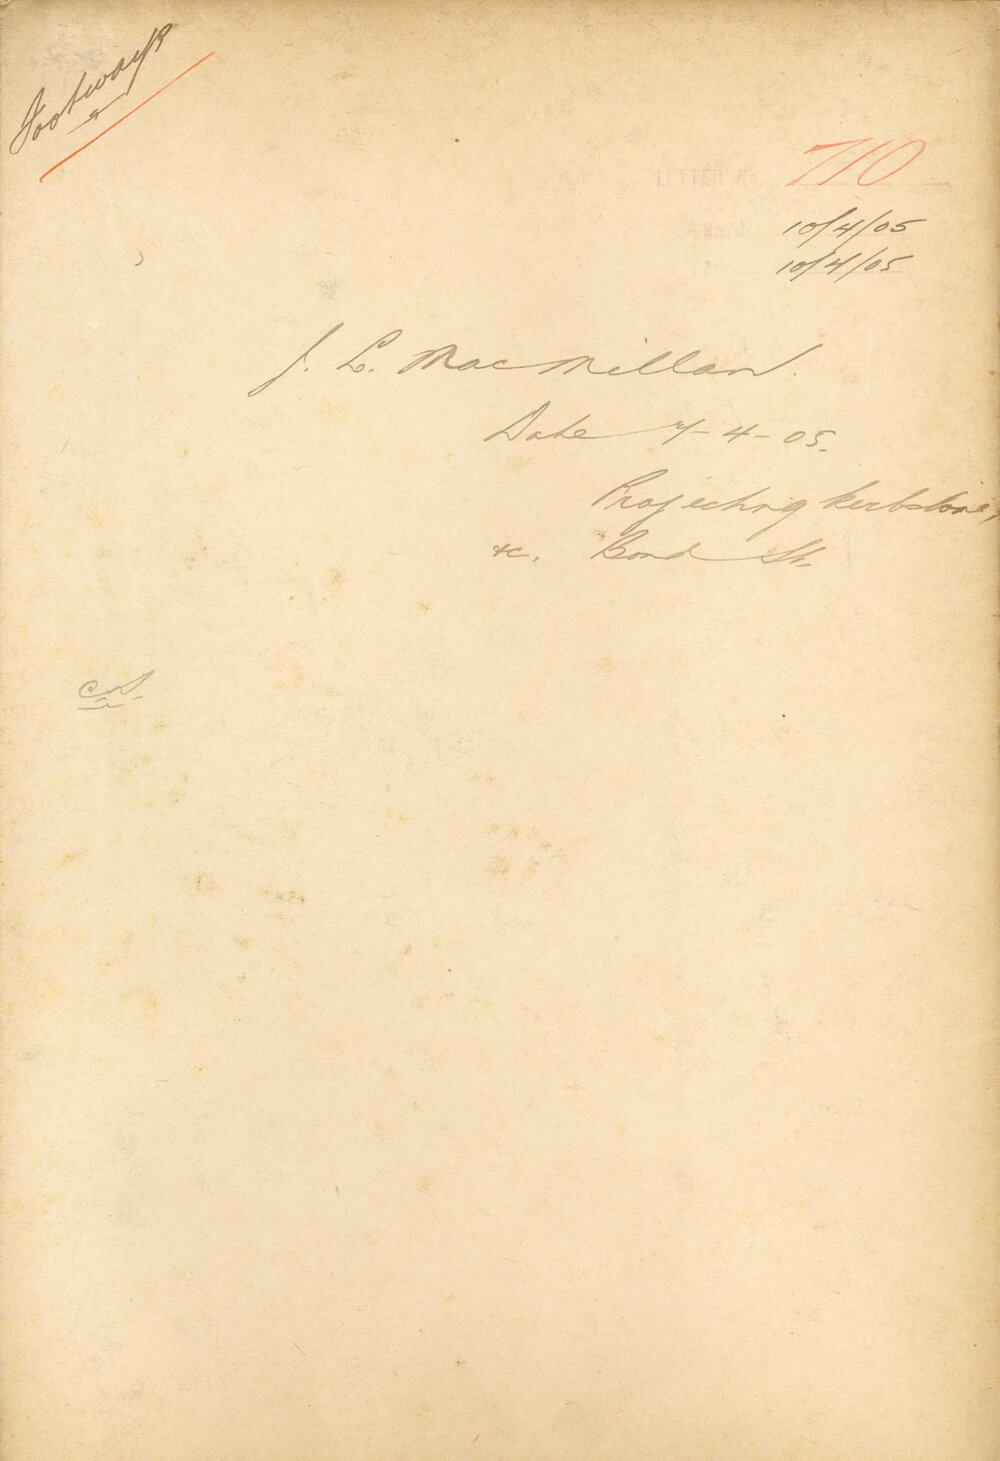 Footways
LETTER No. 710
Rec'd 10/4/05
10/4/05
J. L. MacMillan.
Date 7-4-05.
Projecting kerbstone,
&c. Bond St.